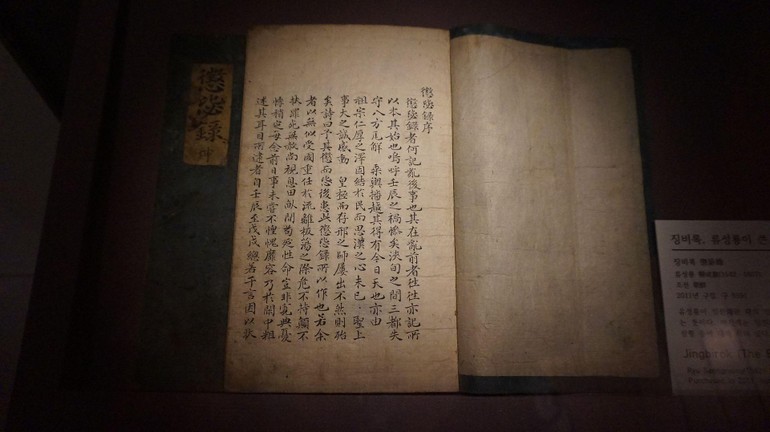 懲毖錄
懲毖錄序
懲毖錄者何記亂後事也其在亂前者往往亦記所
以本其始也嗚呼壬辰之禍慘矣浹旬之間三都失
守八方瓦解 乘輿播越其得有今日天也亦由
祖宗仁厚之澤固結於民而思漢之心未已 聖上
事大之誠感動 皇極而存邢之師屢出不然則殆
矣詩曰予其懲而毖後患此懲毖錄所以作也若余
者以無似受國重任於流離板蕩之際危不持顚不
扶罪死無赦尙視息田畝間苟延性命豈非寬典憂
悸稍定每念前日事未嘗不惶愧靡容乃於閑中粗
述其耳目所逮者自壬辰至戊戌總若干言因以狀
징비록, 류성룡이 쓴
징비록 懲毖錄
조선
Jingbirok, (The